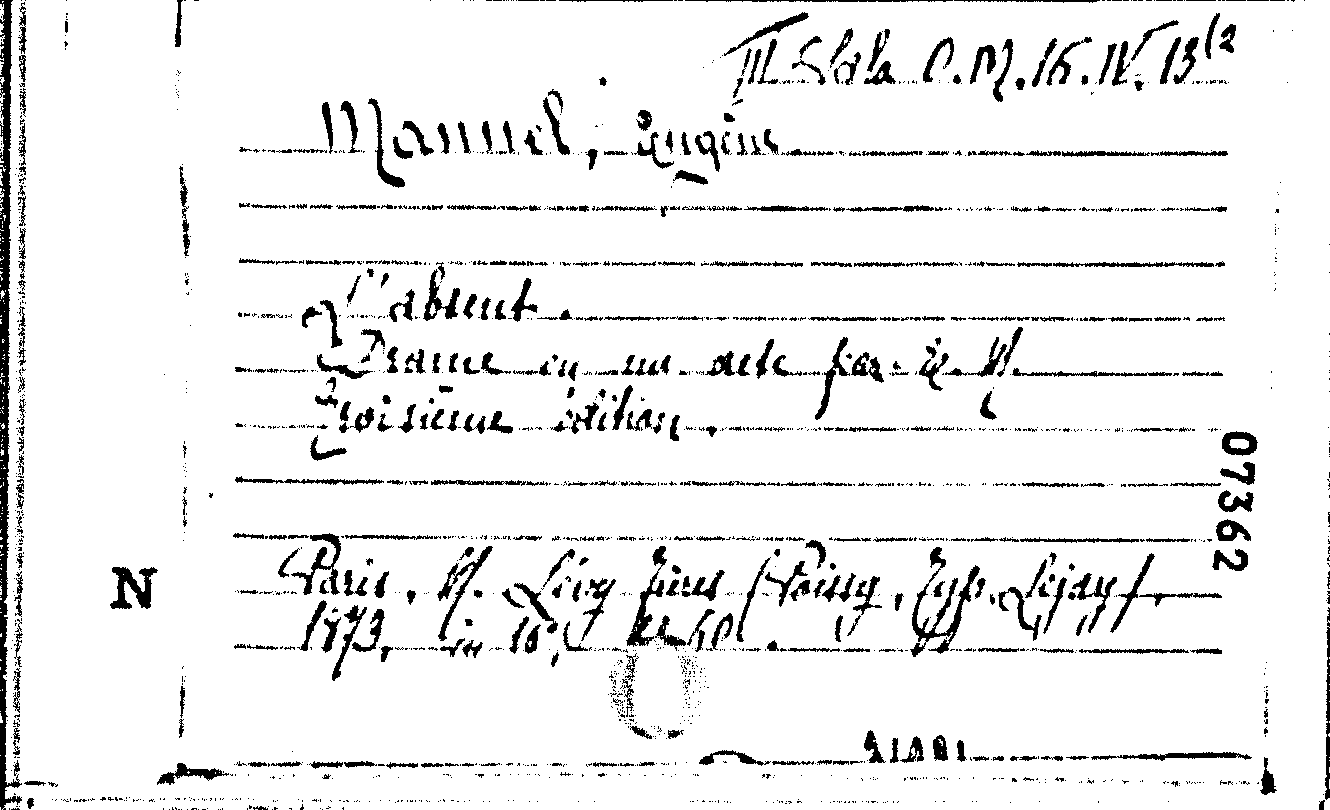 III Slola C.M.16.IV.13(2
Manuel, Eugène.
L'absent.
Drame en un acte par E. M.
Troisième édition.
07362
N
Paris, M. Lévy frères (Poissy, Typ. Lejay),
1873, in 16°, 60.